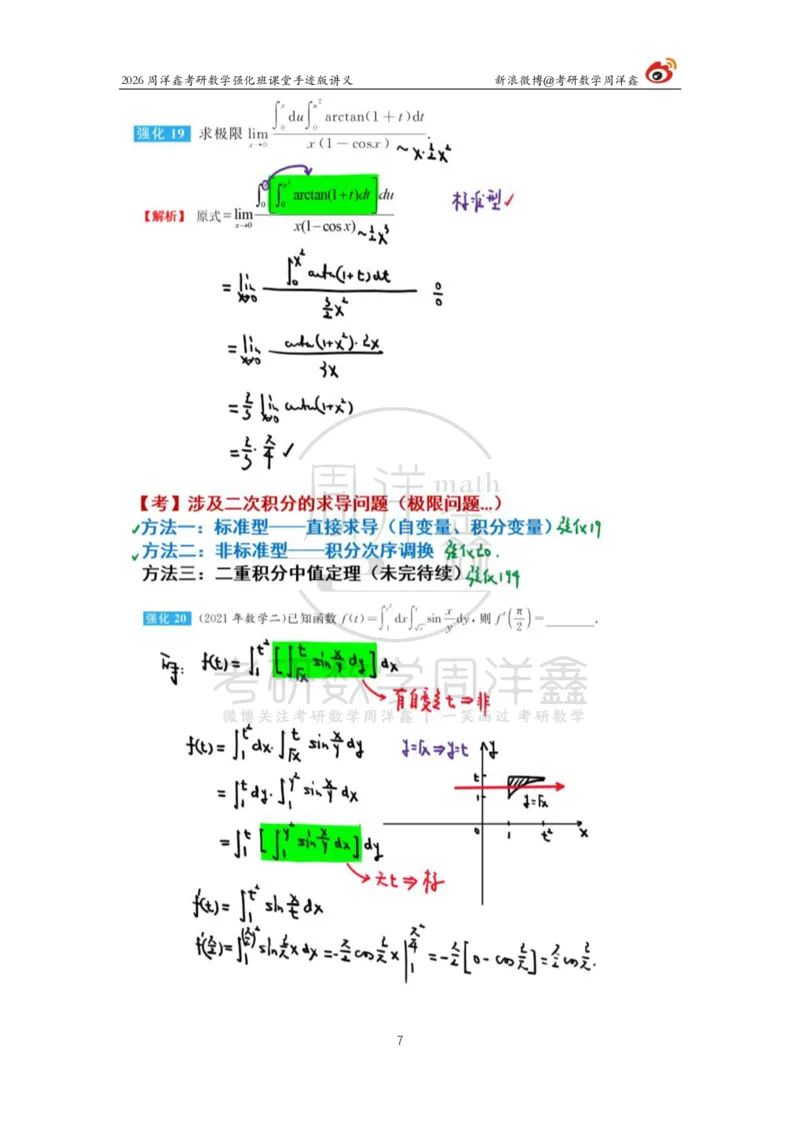 2026 周洋鑫考研数学强化班课堂手迹版讲义 新浪微博@考研数学周洋鑫
强化 19 求极限 lim_{x→0} ∫_0^x du ∫_0^{u²} arctan(1+t)dt / x(1-cosx) . ~ x·½x²
【解析】 原式 = lim_{x→0} ∫_0^x [∫_0^{u²} arctan(1+t)dt] du / x(1-cosx) ~ ½x³ 标准型 ✓
= lim_{x→0} ∫_0^{x²} arctan(1+t)dt / (3/2)x² 0/0
= lim_{x→0} arctan(1+x²)·2x / 3x
= 2/3 lim_{x→0} arctan(1+x²)
= 2/3 · π/4 ✓
周洋鑫 math
【考】涉及二次积分的求导问题（极限问题...）
✓方法一：标准型——直接求导（自变量、积分变量）强化19
✓方法二：非标准型——积分次序调换 强化20.
方法三：二重积分中值定理（未完待续）强化194
强化 20 (2021 年数学二)已知函数 f(t)=∫_1^{t²} dx ∫_{√x}^t sin x/y dy, 则 f′(π/2)=______.
f(t)=∫_1^{t²} [∫_{√x}^t sin x/y dy] dx
考研数学周洋鑫
有自变量 t ⇒ 非
微博关注考研数学周洋鑫 | 一笑而过 考研数学
f(t)=∫_1^{t²} dx·∫_{√x}^t sin x/y dy y=√x ⇒ y=t
= ∫_1^t dy·∫_1^{y²} sin x/y dx
y t 1 y=√x 0 1 t² x
= ∫_1^t [∫_1^{y²} sin x/y dx] dy
无t ⇒ 标
f′(t)=∫_1^{t²} sin x/t dx
f′(π/2)=∫_1^{(π/2)²} sin 2/π x dx = -π/2 cos 2/π x |_1^{π²/4} = -π/2 [0 - cos 2/π] = π/2 cos 2/π.
7